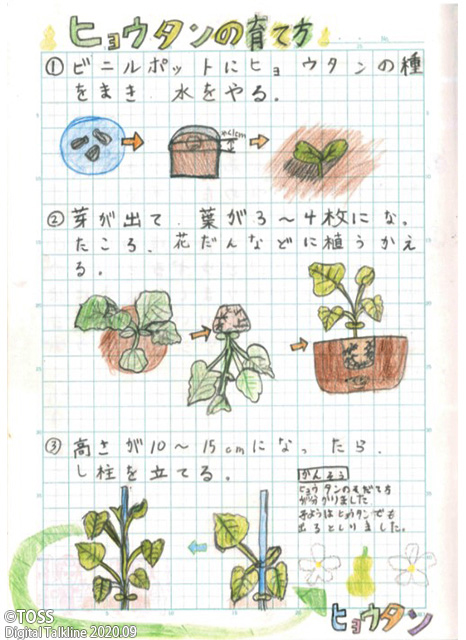 ヒョウタンの育て方
①ビニルポットにヒョウタンの種
をまき、水をやる。
やく1cm
②芽が出て、葉が3〜4枚になっ
たころ、花だんなどに植うかえ
る。
③高さが10〜15cmになったら、
し柱を立てる。
かんそう
ヒョウタンのそだて方
が分かりました
ヒョウタン
©TOSS
Digital Talkline 2020.09